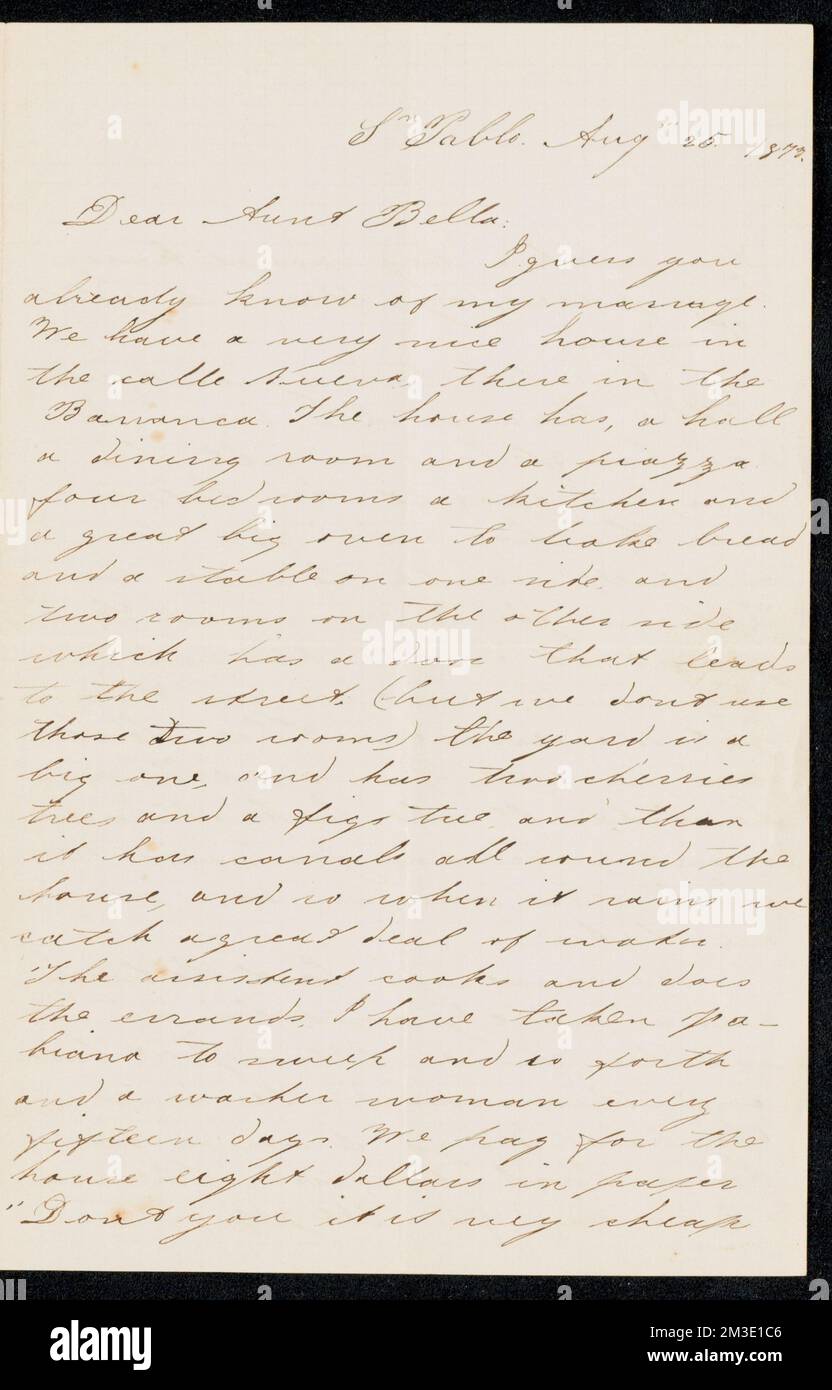 Sn Pablo. Aug 25 187
Dear Aunt Bella:
I guess you
already know of my marriage.
We have a very nice house in
the calle Nueva there in the
Barranca. The house has, a hall
a dining room and a piazza
four bedrooms a kitchen and
a great big oven to bake bread
and a stable on one side and
two rooms on the other side
which has a door that leads
to the street. (but we dont use
those two rooms) the yard is a
big one, and has two cherries
trees and a figs tree and than
it has canals all round the
house, and so when it rains we
catch a great deal of water.
The assistent cooks and does
the errands. I have taken Fa-
biana to sweep and so forth
and a washer woman every
fifteen days. We pay for the
house eight dollars in paper
"Dont you it is very cheap
alamy
alamy
Image ID: 2M3E1C6
www.alamy.com